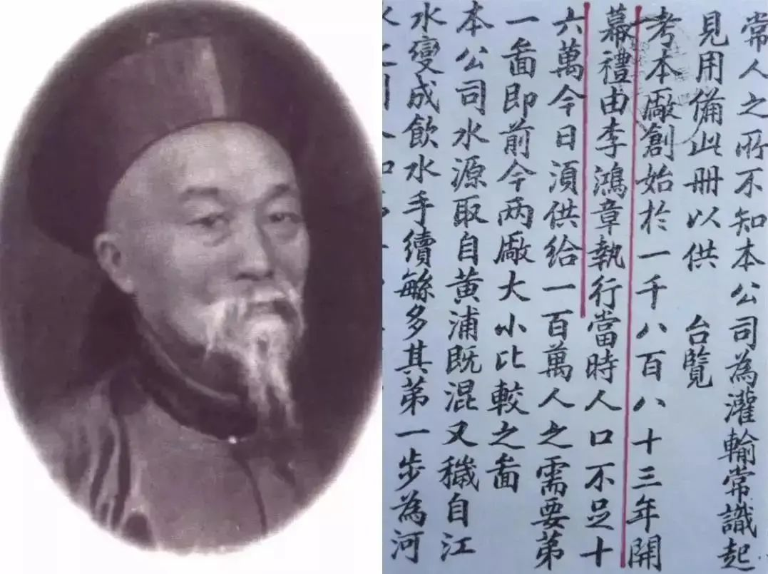 常人之所不知本公司為灌輸常識起
見用備此冊以供 台覽
考本廠創始於一千八百八十三年開
幕禮由李鴻章執行當時人口不足十
六萬今日須供給一百萬人之需要第
一啚即前今兩廠大小比較之啚
本公司水源取自黃浦既混又穢自江
水變成飲水手續緐多其第一步為河